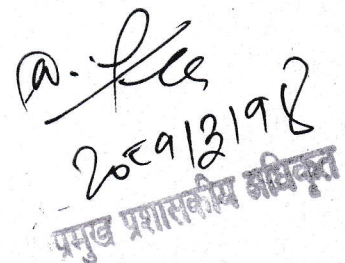 २०८१/३/१४
प्रमुख प्रशासकीय अधिकृत